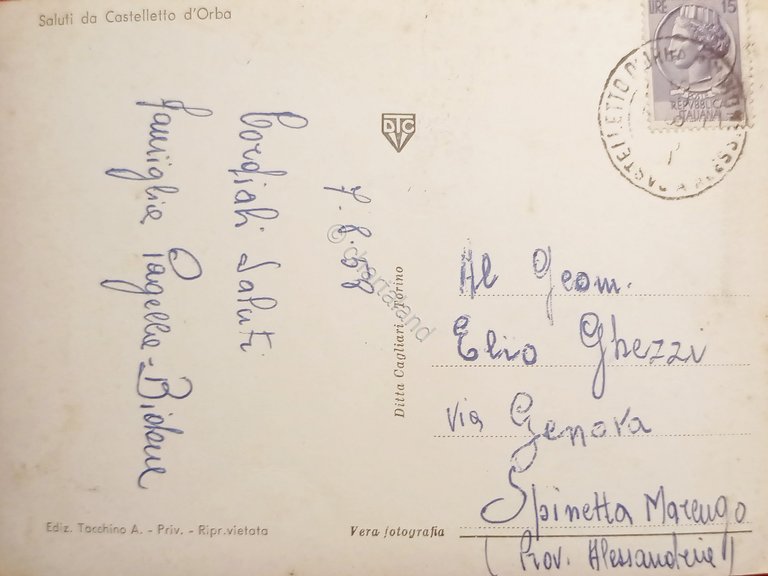 Saluti da Castelletto d'Orba
LIRE 15
REPVBBLICA
ITALIANA
CASTELLETTO D'ORBA
DTC
7.8.58
Cordiali Saluti
famiglia Pagella-
© chartaland
Ditta Cagliari, Torino
Al Geom.
Elio Ghezzi
Via Genova
Spinetta Marengo
(Prov. Alessandria)
Ediz. Tacchino A. - Priv. - Ripr. vietata
Vera fotografia